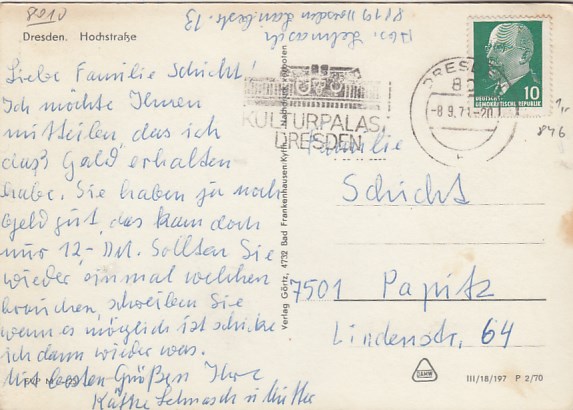 8010
Abs. Lehmasch,
8019 Dresden Landestr. 13
Dresden. Hochstraße
Liebe Familie Schicht!
Ich möchte Ihnen
mitteilen das ich
das Geld erhalten
habe. Sie haben ja noch
Geld gut, das kam doch
nur 12,- DM. Sollten Sie
wieder einmal welchen
brauchen, schreiben Sie
wenn es möglich ist schicke
ich dann wieder was.
Mit besten Grüßen Ihre
Käthe Lehmasch u. Mutter
Verlag Görtz, 4732 Bad Frankenhausen/Kyffh.
Nachdruck verboten
KULTURPALAST
DRESDEN
DRESDEN
80
-8.9.71-20
DEUTSCHE
DEMOKRATISCHE REPUBLIK
10
1,-
846
Familie
Schicht
7501 Papitz
Lindenstr. 64
III/18/197 P 2/70